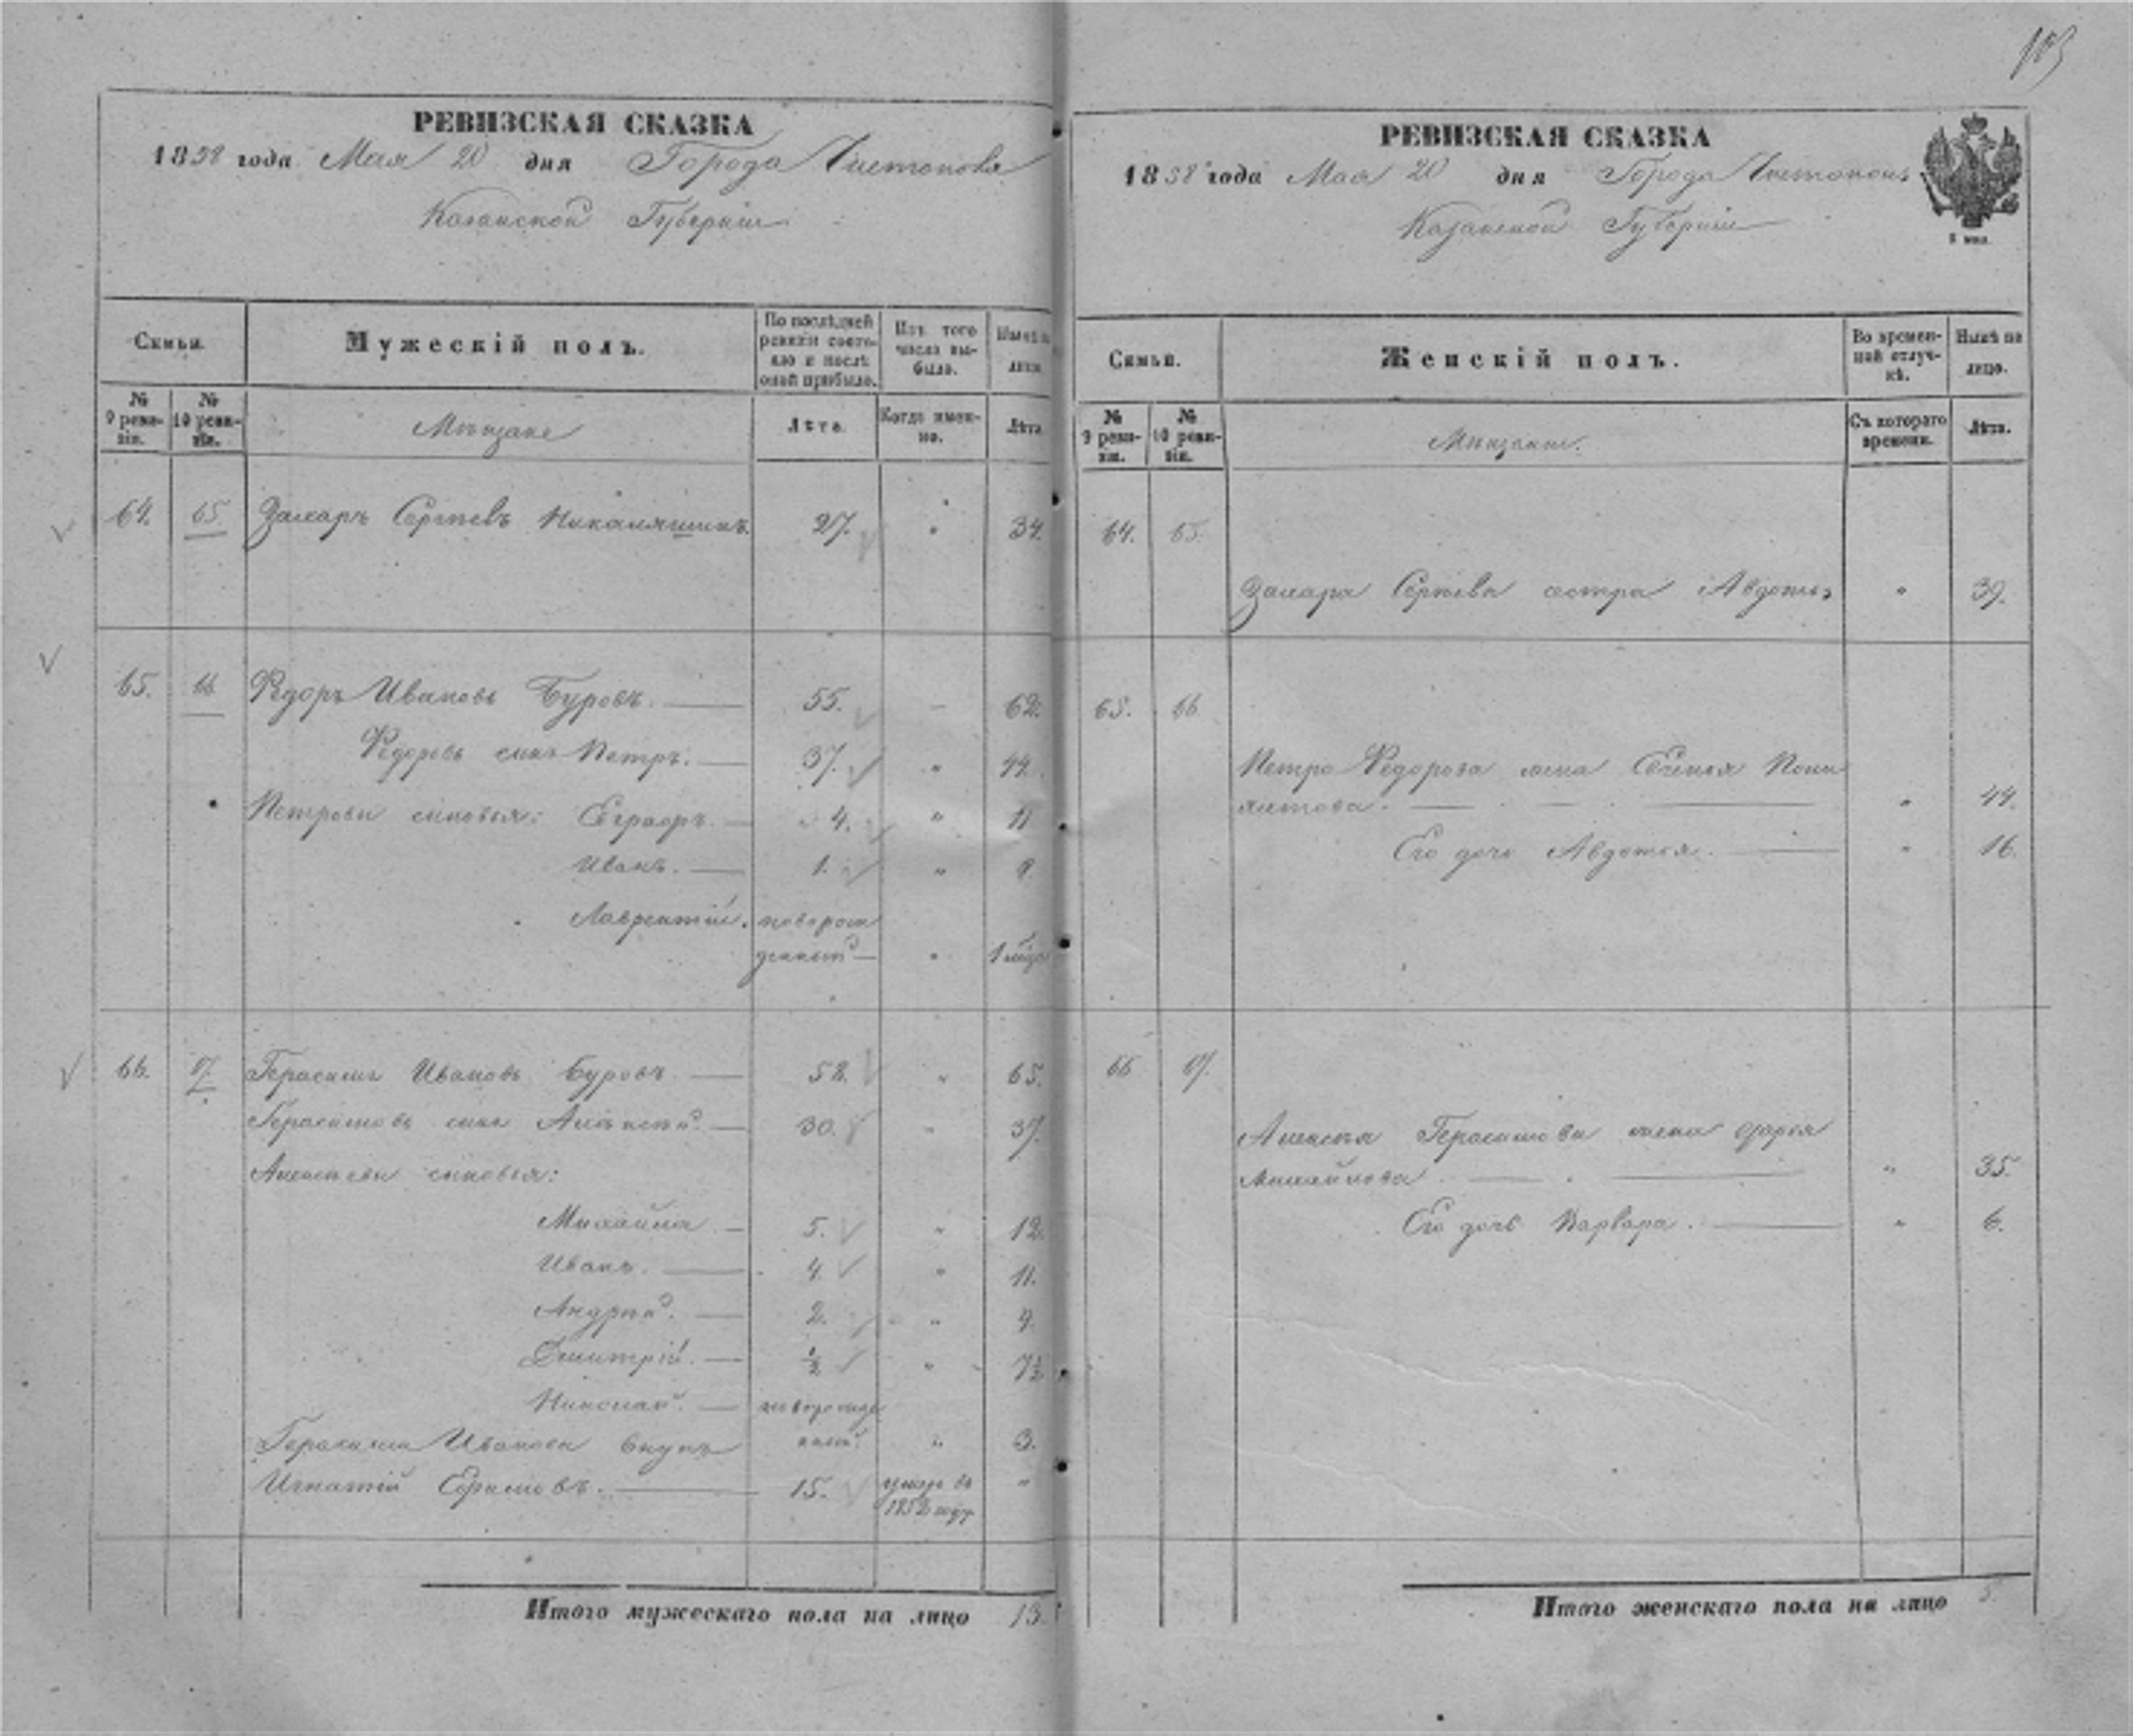 103
РЕВИЗСКАЯ СКАЗКА
1858 года Мая 20 дня Города Чистополя
Казанской Губерніи
Семьи.
Мужескій полъ.
По последней ревизіи состояло и после оной прибыло.
Изъ того числа выбыло.
Ныне на лицо.
№ 9 ревизіи.
№ 10 ревизіи.
Мѣщане
Лѣта.
Когда именно.
Лѣта.
64. 65. Захаръ Сергѣевъ 27. " 34.
65. 66 Федоръ Ивановъ Буровъ. 55. 62.
Федоровъ сынъ Петръ. 37. " 44.
Петровы сыновья: Евграфъ. 4. " 11
Иванъ. 1. " 8
Лаврентій. новорож
денной "
66. 67. Герасимъ Ивановъ Буровъ 58. " 65.
Герасимовъ сынъ Алексѣй. 30. " 37.
Алексѣевы сыновья:
Михайла 5. " 12.
Иванъ. 4. " 11.
Андрей. 2. " 9.
Дмитрій. ½ " 7½
Николай. новорожде
нной. " 3.
Герасима Иванова внукъ
Игнатій 15. умеръ въ "
1852 году
Итого мужескаго пола на лицо 13.
РЕВИЗСКАЯ СКАЗКА
1858 года Мая 20 дня Города Чистополя
Казанской Губерніи
Семьи.
Женскій полъ.
Во временной отлучкѣ.
Ныне на лицо.
№ 9 ревизіи.
№ 10 ревизіи.
Мѣщане.
Съ котораго времени.
Лѣта.
64. 65.
Захара Сергѣева сестра Авдотья " 39.
65. 66
Петра Федорова жена Евгенья
" 44.
Его дочь Авдотья. " 16.
66 67.
Алексѣя Герасимова жена Дарья
Михайлова " 35.
Его дочь Варвара. " 6.
Итого женскаго пола на лицо 5.